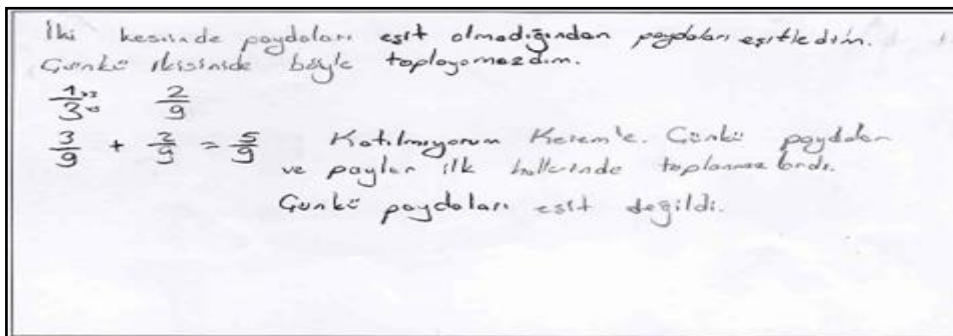 İki kesirinde paydaları eşit olmadığından paydaları eşitledim.
Çünkü ikisinide böyle toplayamazdım.
1/3 2/9
3/9 + 2/9 = 5/9 Katılmıyorum Kerem'e. Çünkü paydaları
ve payları ilk hallerinde toplanmazlardı.
Çünkü paydaları eşit değildi.